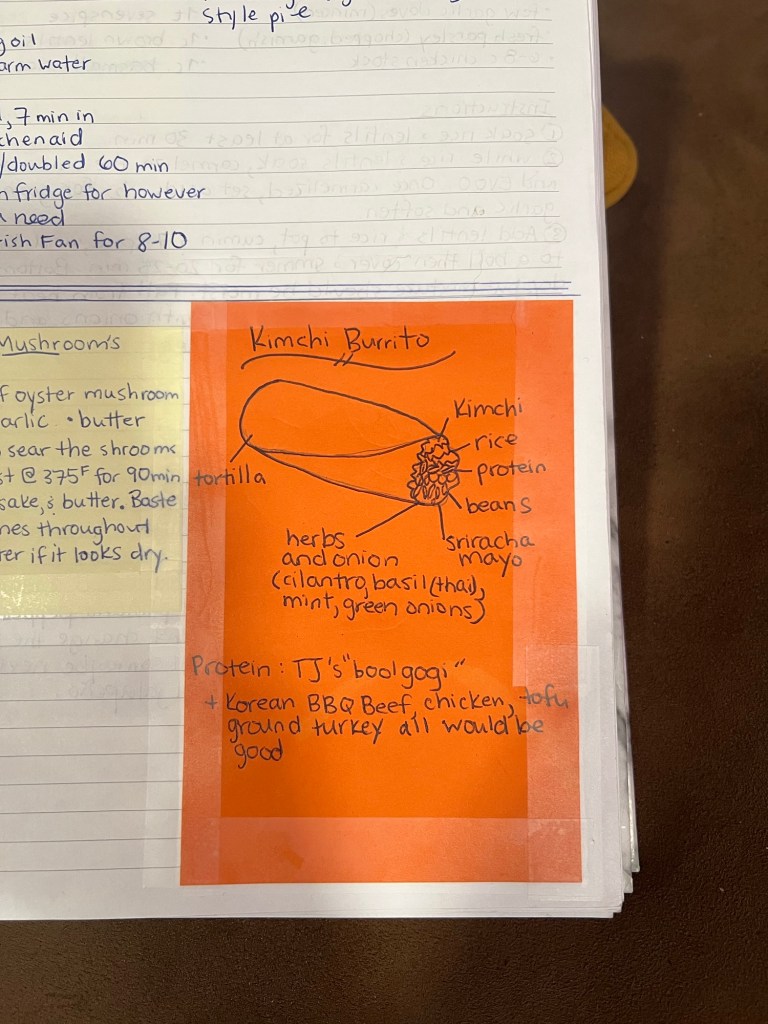 style pie
oil
arm water
, 7 min in
chenaid
/doubled 60 min
fridge for however
need
ish Fan for 8-10
Mushroom's
f oyster mushroom
arlic • butter
sear the shrooms
st @ 375F for 90min
sake, & butter. Baste
nes throughout
er if it looks dry.
Kimchi Burrito
Kimchi
rice
protein
tortilla
beans
sriracha
mayo
herbs
and onion
(cilantro, basil (thai),
mint, green onions)
Protein: TJ's "bool gogi"
+ Korean BBQ Beef, chicken, tofu
ground turkey all would be
good